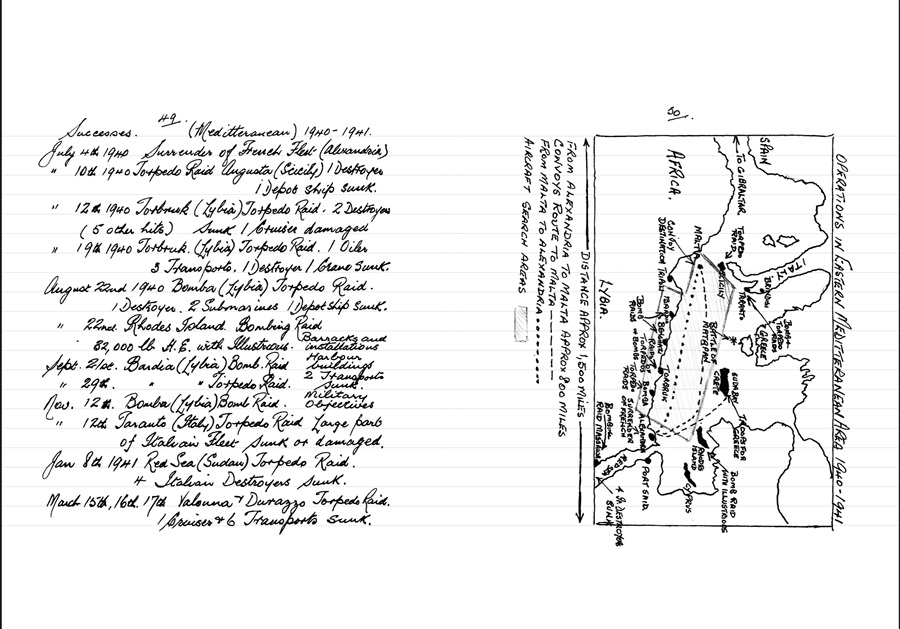 49.
Successes. (Meditteranean) 1940-1941.
July 4th 1940 Surrender of French Fleet (Alexandria)
" 10th 1940 Torpedo Raid Augusta (Scicily) 1 Destroyer
1 Depot Ship sunk.
" 12th 1940 Torbruk (Lybia) Torpedo Raid. 2 Destroyers
(5 other hits) Sunk 1 Cruiser damaged
" 19th 1940 Torbruk. (Lybia) Torpedo Raid. 1 Oiler
3 Transports. 1 Destroyer 1 Crane Sunk.
August 22nd 1940 Bomba (Lybia) Torpedo Raid.
1 Destroyer. 2 Submarines 1 Depotship Sunk.
" 22nd. Rhodes Island Bombing Raid
82,000 lb H.E. with Illustrious. Barracks and installations
Harbour buildings
Sept. 21st. Bardia (Lybia) Bomb. Raid
" 29th. " " Torpedo Raid. 2 Transports Sunk.
Nov. 12th. Bomba (Lybia) Bomb Raid. Military Objectives
" 12th Taranto (Italy) Torpedo Raid Large part
of Italian Fleet Sunk or damaged.
Jan 8th 1941 Red Sea (Sudan) Torpedo Raid.
4 Italian Destroyers Sunk.
March 15th, 16th. 17th Valouna & Durazzo Torpedo Raid.
1 Cruiser & 6 Transports Sunk.
50.
OPERATIONS IN EASTERN MEDITTERANEAN AREA 1940-1941
SPAIN
TO GIBRALTAR
AFRICA.
ITALY
BRINDISI
TARANTO
TORPEDO RAIDS
SICILY
MALTA
CONVOY DESTINATION
GREECE
BATTLE OF MATTAPAN
CRETE
SUDA BAY
TROOPS FOR GREECE
BOMB RAID WITH ILLUSTRIOUS
RHODES ISLAND
CYPRUS
TORBRUK
BOMBA
SURRENDER OF FRENCH
PORT SAID
RED SEA
LYBIA.
DISTANCE APPROX 1,500 MILES
FROM ALEXANDRIA TO MALTA APPROX 800 MILES
CONVOYS ROUTE TO MALTA
FROM MALTA TO ALEXANDRIA
AIRCRAFT SEARCH AREAS